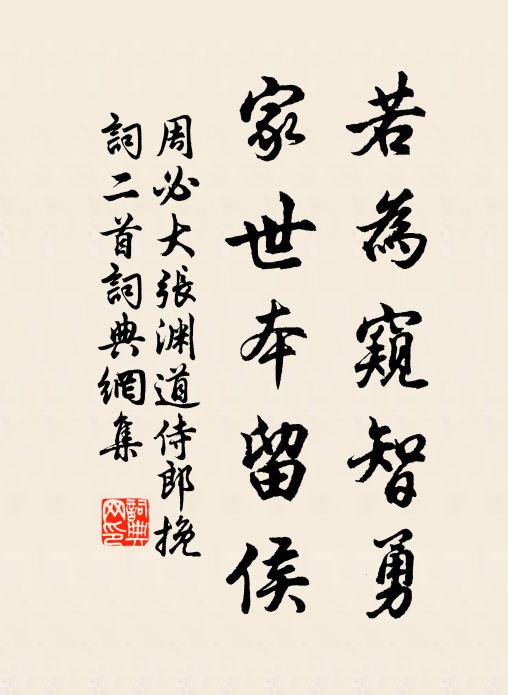 若為窺智勇
家世本留侯
周必大張渊道侍郎挽
詞二首詞典網集
詞典網印